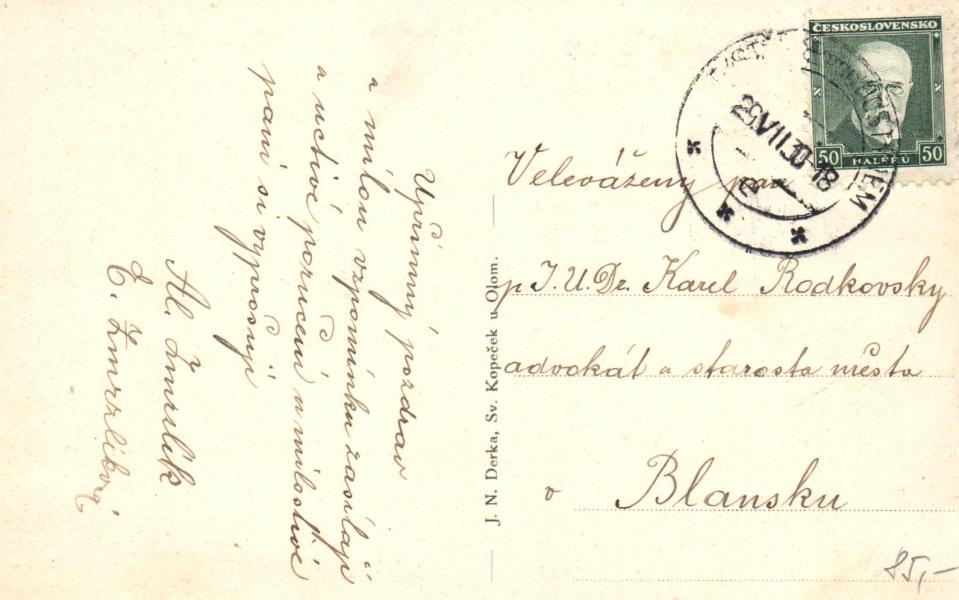 Upřímný pozdrav
a milou vzpomínku zasílají
a uctivé poručení u milostivé
paní si vyprošují
Al. Zmrzlík
E. Zmrzlíková
J. N. Derka, Sv. Kopeček u Olom.
ČESKOSLOVENSKO
50 HALÉŘŮ 50
29.VII.30-18
Velevážený pan
p J.U.Dr. Karel Rodkovsky
advokát a starosta města
v Blansku
85,-